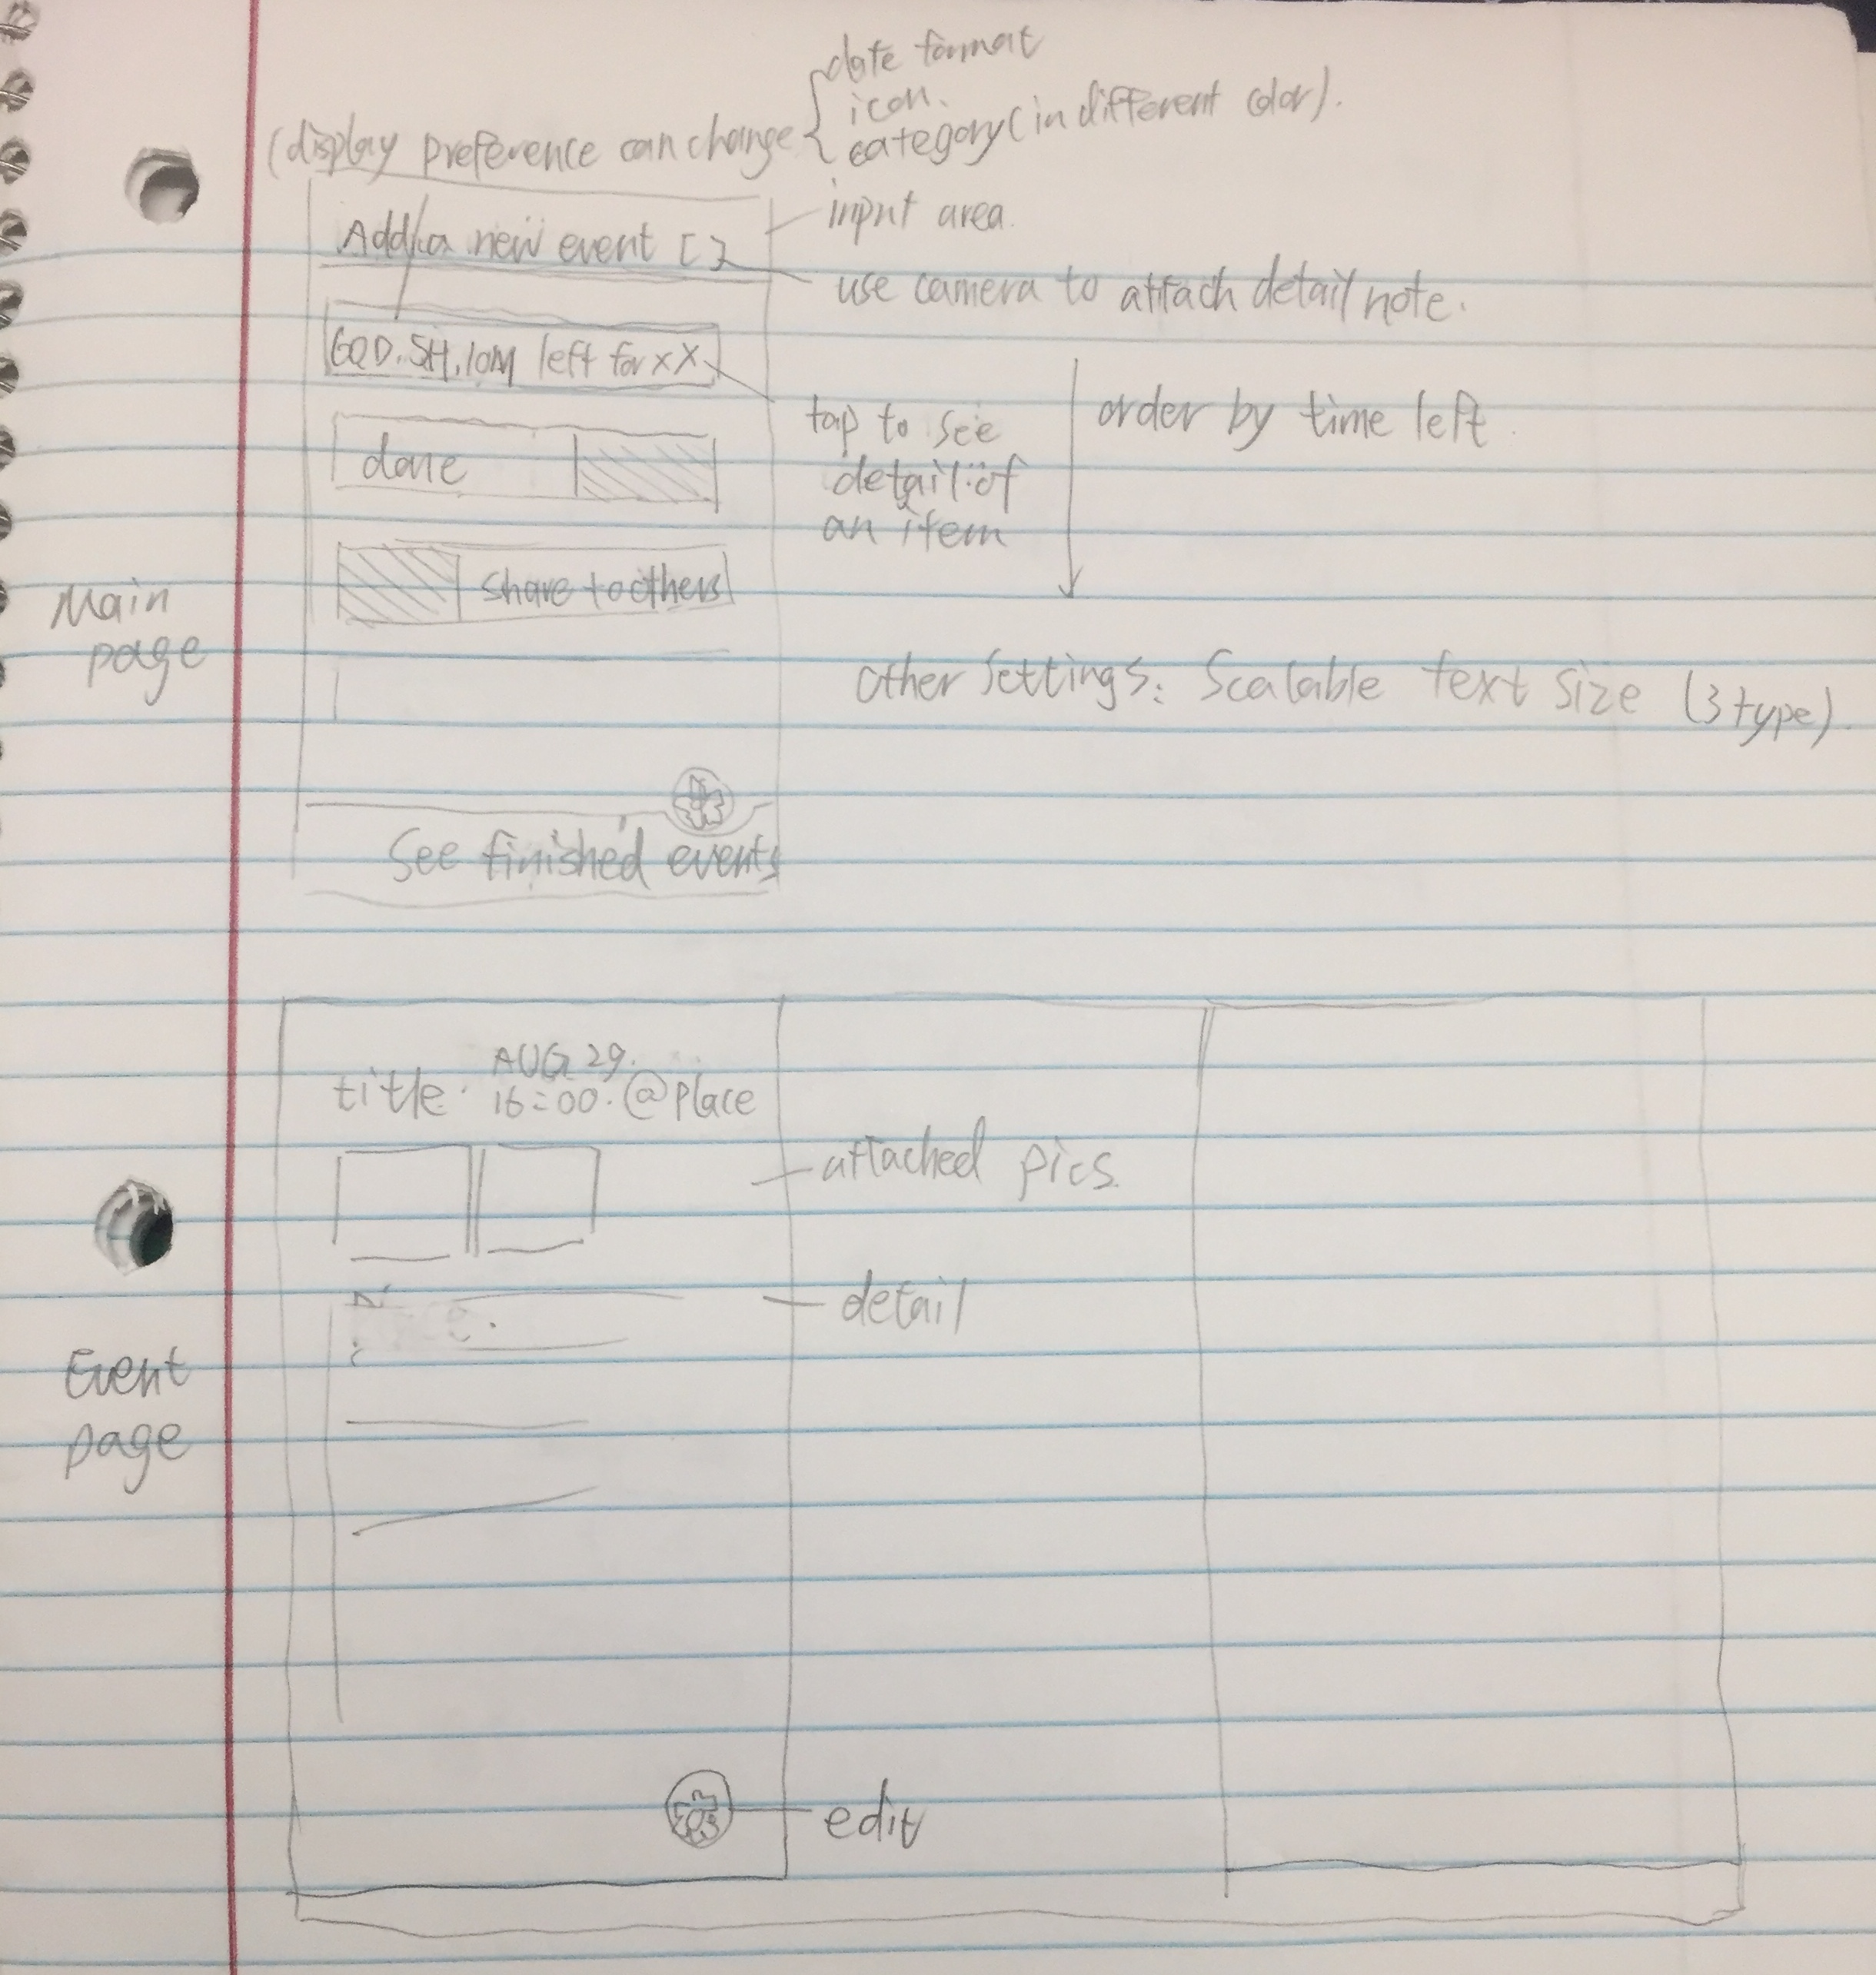 date format
icon.
(display preference can change { category (in different color).
Add a new event [ ]
input area.
use camera to attach detail note.
60D.5H.10M left for xX
tap to see
detail of
an item
order by time left
done
share to others
Main
page
Other settings: Scalable text size (3 type).
See finished events
AUG 29.
title. 16:00. @place
attached pics.
detail
Event
page
edit